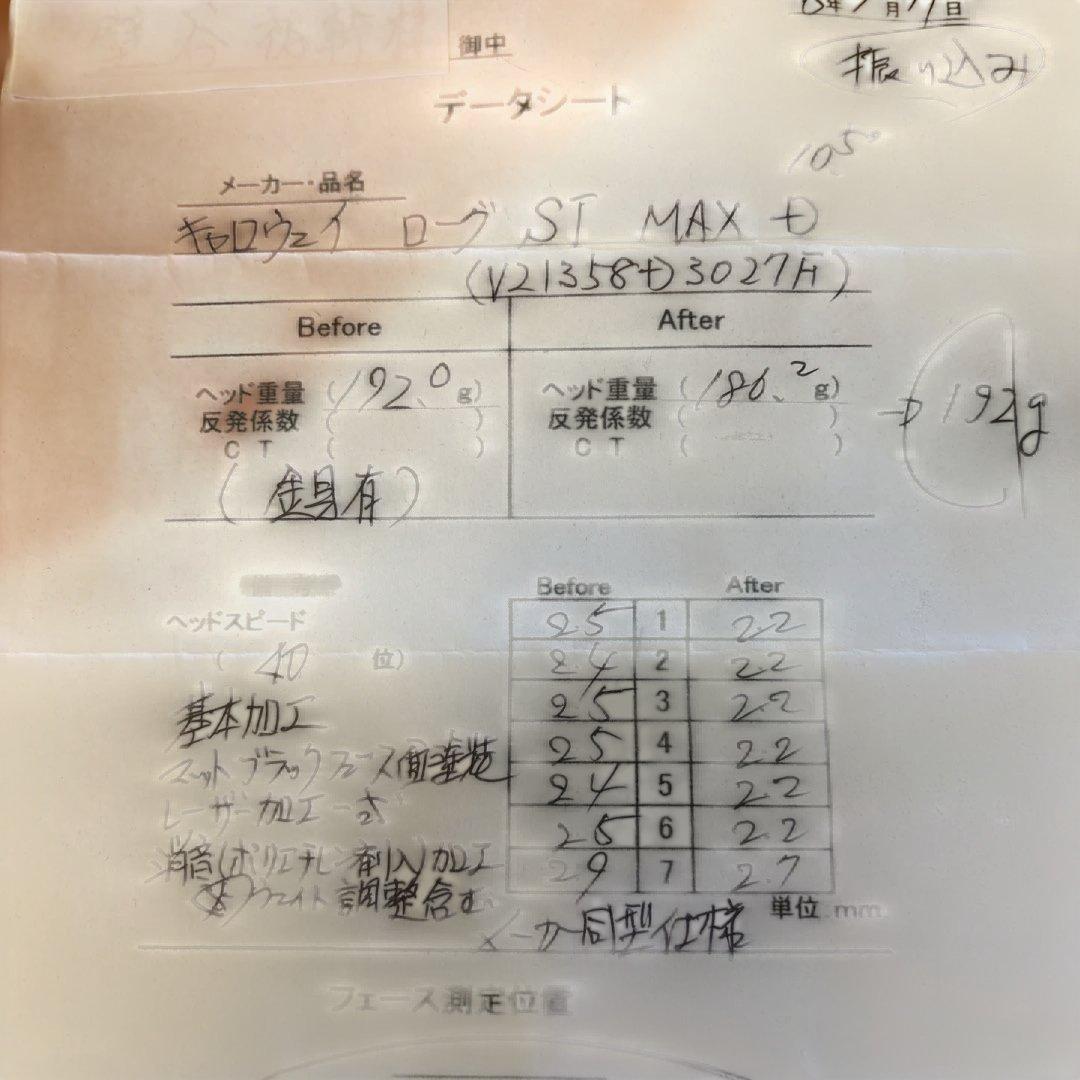 御中
振り込み
データシート
10.5°
メーカー・品名
キャロウェイ ローグ ST MAX D
(V21358D3027H)
Before After
ヘッド重量 (192.0g) ヘッド重量 (186.2g) → 192g
反発係数 ( ) 反発係数 ( )
CT ( ) CT ( )
(金具有)
Before After
ヘッドスピード
(40 位)
2.5 1 2.2
2.4 2 2.2
2.5 3 2.2
2.5 4 2.2
2.4 5 2.2
2.5 6 2.2
2.9 7 2.7
基本加工
マットブラックフェース面塗装
レーザー加工一式
消音(ポリエチレン剤入)加工
ウェイト調整含む
単位:mm
メーカー同型仕様
フェース測定位置